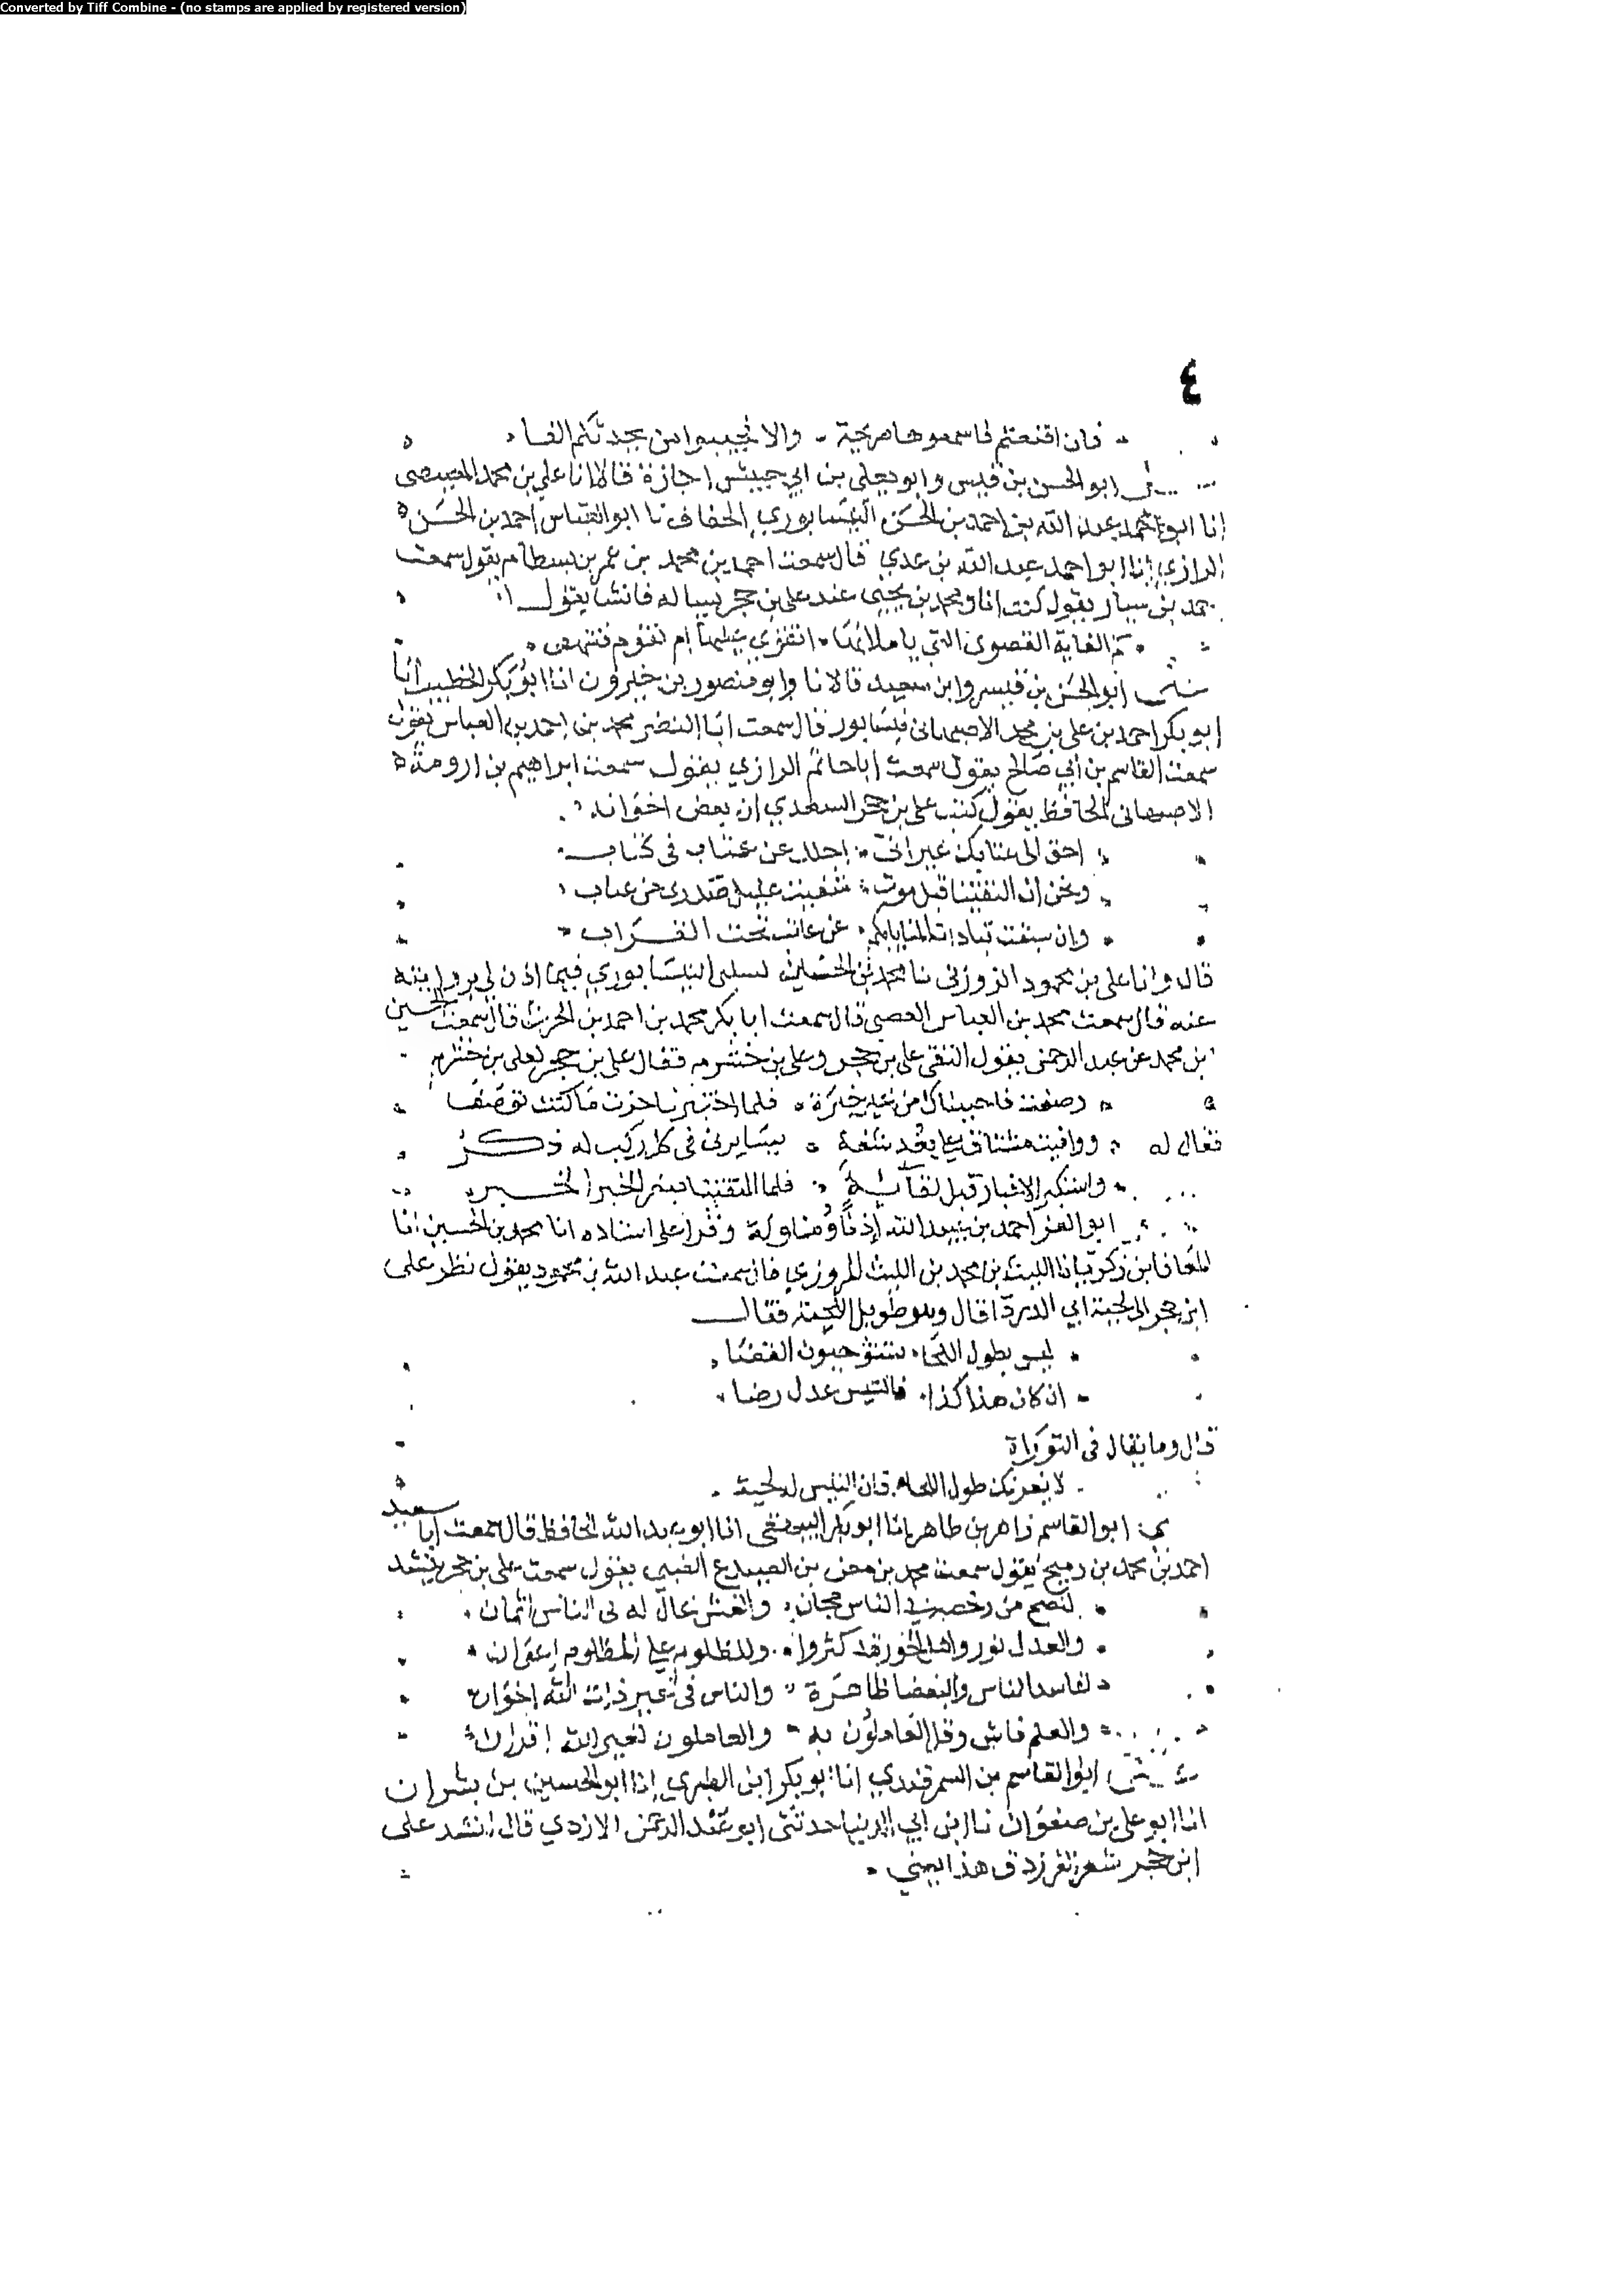 Converted by Tiff Combine - (no stamps are applied by registered version)
٤
فان اقنعتم فاسمعوها صريحة والا فجيبوا من يحدثكم الفا
ابو الحسن بن قبيس وابو يعلى بن ابي حبيش اجازة قالا انا علي بن محمد المصيصي
انا ابو محمد عبد الله بن احمد بن الحسن النيسابوري الخفاف نا ابو العباس احمد بن الحسن
الرازي انا ابو احمد عبد الله بن عدي قال سمعت احمد بن محمد بن عمر بن بسطام يقول سمعت
احمد بن سيار يقول كنت انا ومحمد بن يحيى عند علي بن حجر فانشا يقول
الغاية القصوى التي ام نقوم فننهض
ابو الحسن بن قبيس وابن سعيد قالا نا وابو منصور بن خيرون انا ابو بكر الخطيب انا
ابو بكر احمد بن علي بن محمد الاصبهاني فيسابور قال سمعت ابا النضر محمد بن احمد بن العباس يقول
سمعت القاسم بن ابي صالح يقول سمعت ابا حاتم الرازي يقول سمعت ابراهيم بن ارومة
الاصبهاني الحافظ يقول كتب علي بن حجر السعدي الى بعض اخوانه
احن الى عتابك غير اني اجلك عن عتاب في كتاب
ونحن ان التقينا قبل موت شفيت عليل صدري من عتاب
وان سبقت بنا ذات المنايا فكم من عاتب تحت التراب
قال وانا علي بن محمود الزوزني نا محمد بن الحسين السلمي النيسابوري فيما اذن لي بروايته
عنه قال سمعت محمد بن العباس العصمي قال سمعت ابا بكر محمد بن احمد بن الحرث قال سمعت الحسين
بن محمد عن عبد الرحمن يقول التقى علي بن حجر وعلي بن خشرم فقال علي بن حجر لعلي بن خشرم
وصفت فاحببناك من غير خبرة فلما اختبرنا حزت ما كنت توصف
فقال له ووافيت مشتاقا على بعد شقة يسايرني في كل ركب له ذكر
واستكبر الاخبار قبل لقائه فلما التقينا صغر الخبر الخبر
ابو العز احمد بن عبيد الله اذنا ومناولة وقرا على اسناده انا محمد بن الحسين انا
المعافا بن زكريا نا الليث بن محمد بن الليث المروزي قال سمعت عبد الله بن محمود يقول نظر علي
ابن حجر الى لحية ابي الدرداء قال وهو طويل اللحية فقال
ليس بطول اللحاء تستوجبون القضا
ان كان هذا كذا فالتيس عدل رضا
قال وما يقال في التوراة
لا يغرنك طول اللحا فان التيس له لحية
ابو القاسم زاهر بن طاهر انا ابو بكر البيهقي انا ابو عبد الله الحافظ قال سمعت ابا سعيد
احمد بن محمد بن رميح يقول سمعت محمد بن بن الضبي يقول سمعت علي بن حجر ينشد
النصح من رخصه في الناس مجان والغش غال له في الناس اثمان
والعدل نور واهل الجور قد كثروا وللظلوم على المظلوم اعوان
تفاسد الناس والبغضا ظاهرة والناس في غير ذات الله اخوان
والعلم فاش وقل العاملون به والعاملون لغير الله اقران
ابو القاسم بن السمرقندي انا ابو بكر ابن الطبري انا ابو الحسين بن بشران
انا ابو علي بن صفوان نا ابن ابي الدنيا حدثني ابو عبد الرحمن الازدي قال انشد علي
ابن حجر شعر الفرزدق هذا